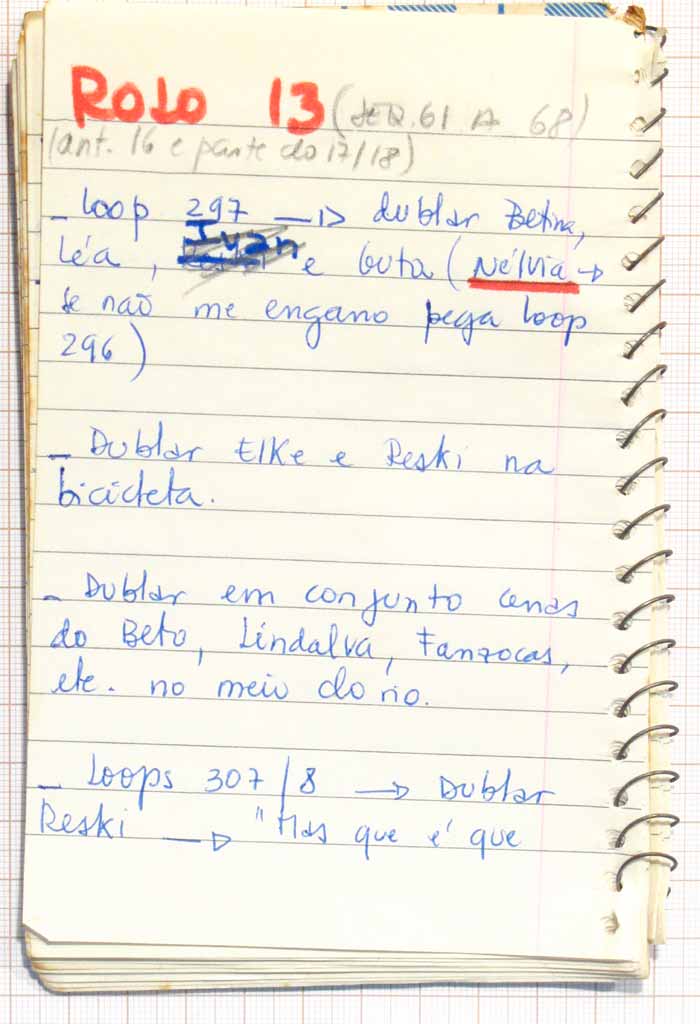 ROLO 13 (SEQ. 61 A 68)
(ant. 16 e parte do 17/18)
- Loop 297 → dublar Betina,
Léa, Ivan e Guta (Nélvia →
se não me engano pega loop
296)
- Dublar Elke e Reski na
bicicleta.
- Dublar em conjunto cenas
do Beto, Lindalva, Fanzocas,
etc. no meio do rio.
- Loops 307/8 → Dublar
Reski → "Mas que é que